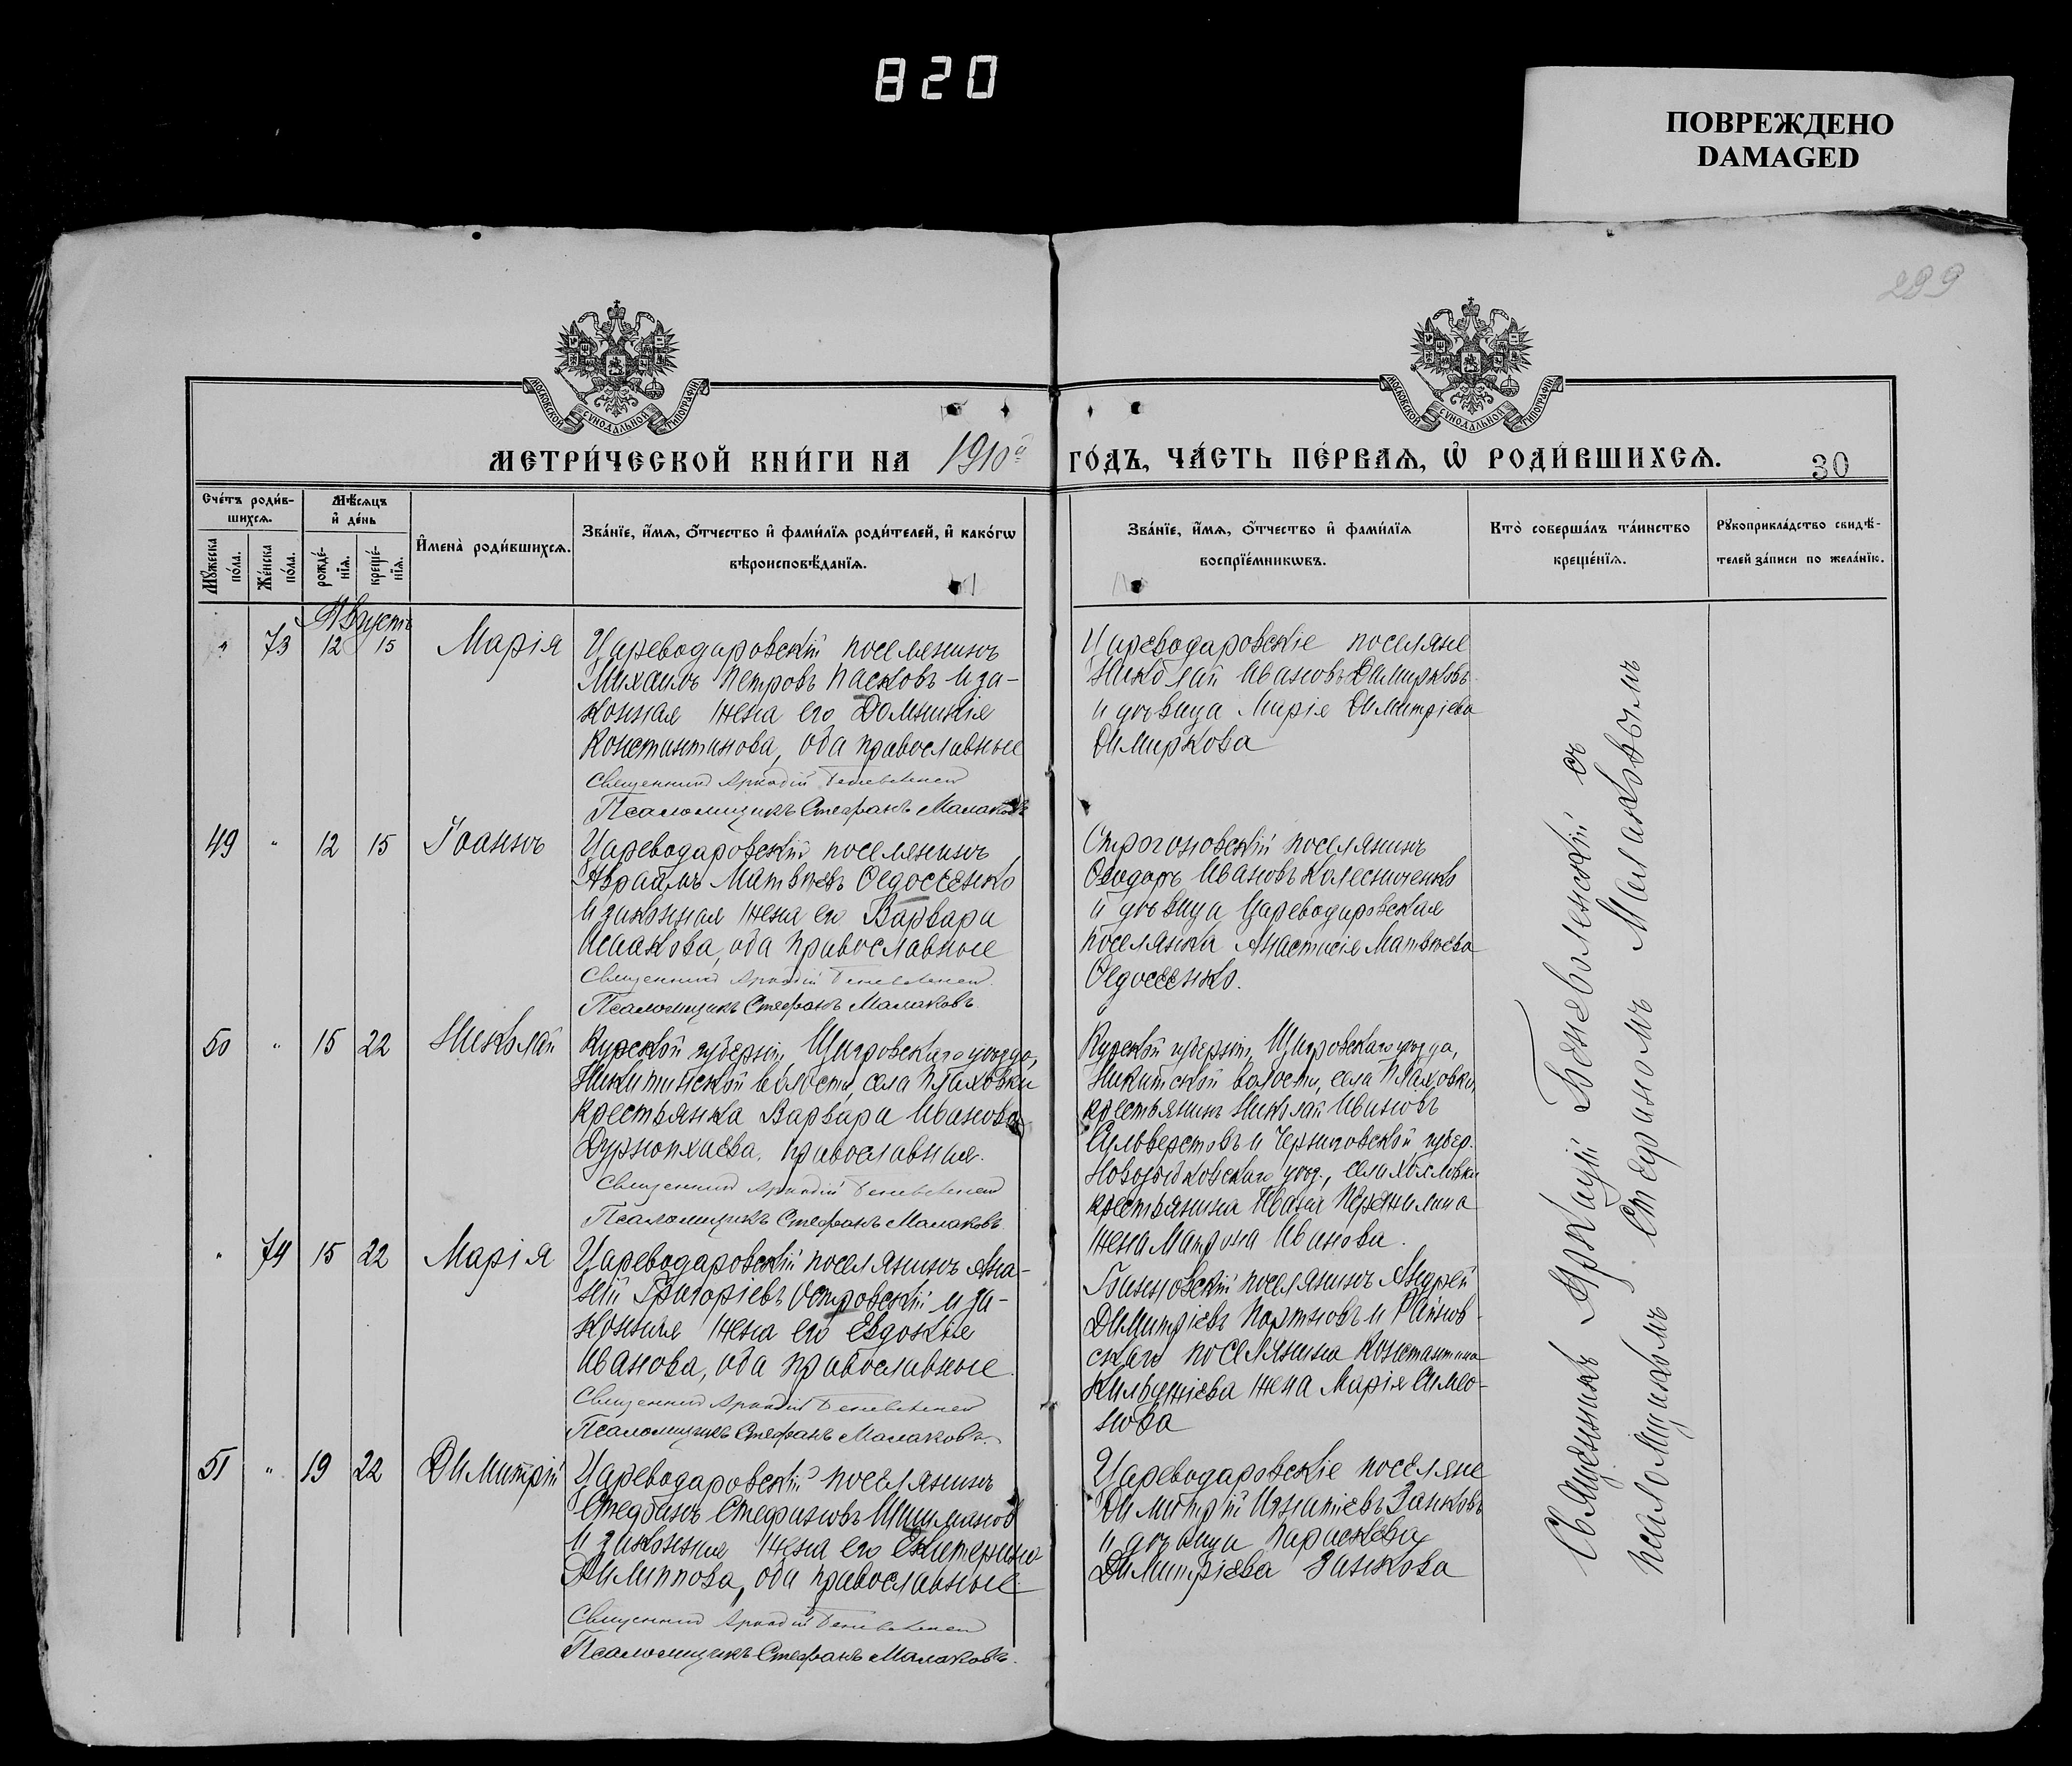 820
ПОВРЕЖДЕНО
DAMAGED
289
МОСКОВСКОЙ СѴНОДАЛЬНОЙ ТИПОГРАФІИ
МОСКОВСКОЙ СѴНОДАЛЬНОЙ ТИПОГРАФІИ
МЕТРИ́ЧЕСКОЙ КНИ́ГИ НА 1910й ГО́ДЪ, ЧА́СТЬ ПЕ́РВАѦ, Ѡ҆ РОДИ́ВШИХСѦ.
30
Сче́тъ роди́в-
шихсѧ.
Мꙋ́жеска по́ла.
Же́нска по́ла.
Мѣ́сѧцъ
и҆ де́нь
рожде́-
нїѧ.
креще́-
нїѧ.
И҆мена̀ роди́вшихсѧ.
Зва́нїе, и҆́мѧ, ѻ҆́тчество и҆ фами́лїѧ роди́телей, и҆ како́гѡ
вѣроисповѣ́данїѧ.
Зва́нїе, и҆́мѧ, ѻ҆́тчество и҆ фами́лїѧ
воспрїе́мникѡвъ.
Кто̀ соверша́лъ та́инство
креще́нїѧ.
Рꙋкоприкла́дство свидѣ́-
телей за́писи по жела́нїю.
Августъ
" 73 12 15 Марія
Цареводаровскій поселянинъ
Михаилъ Петровъ Пасковъ и за-
конная жена его Домникія
Константинова, оба православные
Священникъ Аркадій Беневоленскій
Псаломщикъ Стефанъ Малаковъ
Цареводаровскіе поселяне
Николай Ивановъ Димирковъ
и дѣвица Марія Димитріева
Димиркова
49 " 12 15 Іоаннъ
Цареводаровскій поселянинъ
Авраамъ Матвѣевъ Федосеенко
и законная жена его Варвара
Исаакова, оба православные
Священникъ Аркадій Беневоленскій
Псаломщикъ Стефанъ Малаковъ.
Строгоновскій поселянинъ
Феодоръ Ивановъ Колесниченко
и дѣвица Цареводаровская
поселянка Анастасія Матвѣева
Федосеенко.
50 " 15 22 Николай
Курской губерніи, Щигровскаго уѣзда,
Никитинской волости, села Плаховки
крестьянка Варвара Иванова
православная.
Священникъ Аркадій Беневоленскій
Псаломщикъ Стефанъ Малаковъ.
Курской губерніи, Щигровскаго уѣзда,
Никитской волости, села Плаховки,
крестьянинъ Николай Ивановъ
Сильверстовъ и Черниговской губер.
Новозыбковскаго уѣзд., села
крестьянина Ивана
жена Матрона Иванова.
" 74 15 22 Марія
Цареводаровскій поселянинъ Ана-
ній Григоріевъ Островскій и за-
конная жена его Евдокія
Иванова, оба православные.
Священникъ Аркадій Беневоленскій
Псаломщикъ Стефанъ Малаковъ.
поселянинъ Андрей
Димитріевъ Портновъ и Раінов-
скаго поселянина Константина
жена Марія Симео-
нова
51 " 19 22 Димитрій
Цареводаровскій поселянинъ
Стефанъ Стефановъ Шишмановъ
и законная жена его Екатерина
Филиппова, оба православные.
Священникъ Аркадій Беневоленскій
Псаломщикъ Стефанъ Малаковъ.
Цареводаровскіе поселяне
Димитрій Игнатіевъ Занковъ
и дѣвица Параскева
Димитріева Занкова
Священникъ Аркадій Беневоленскій съ
псаломщикомъ Стефаномъ Малаковымъ